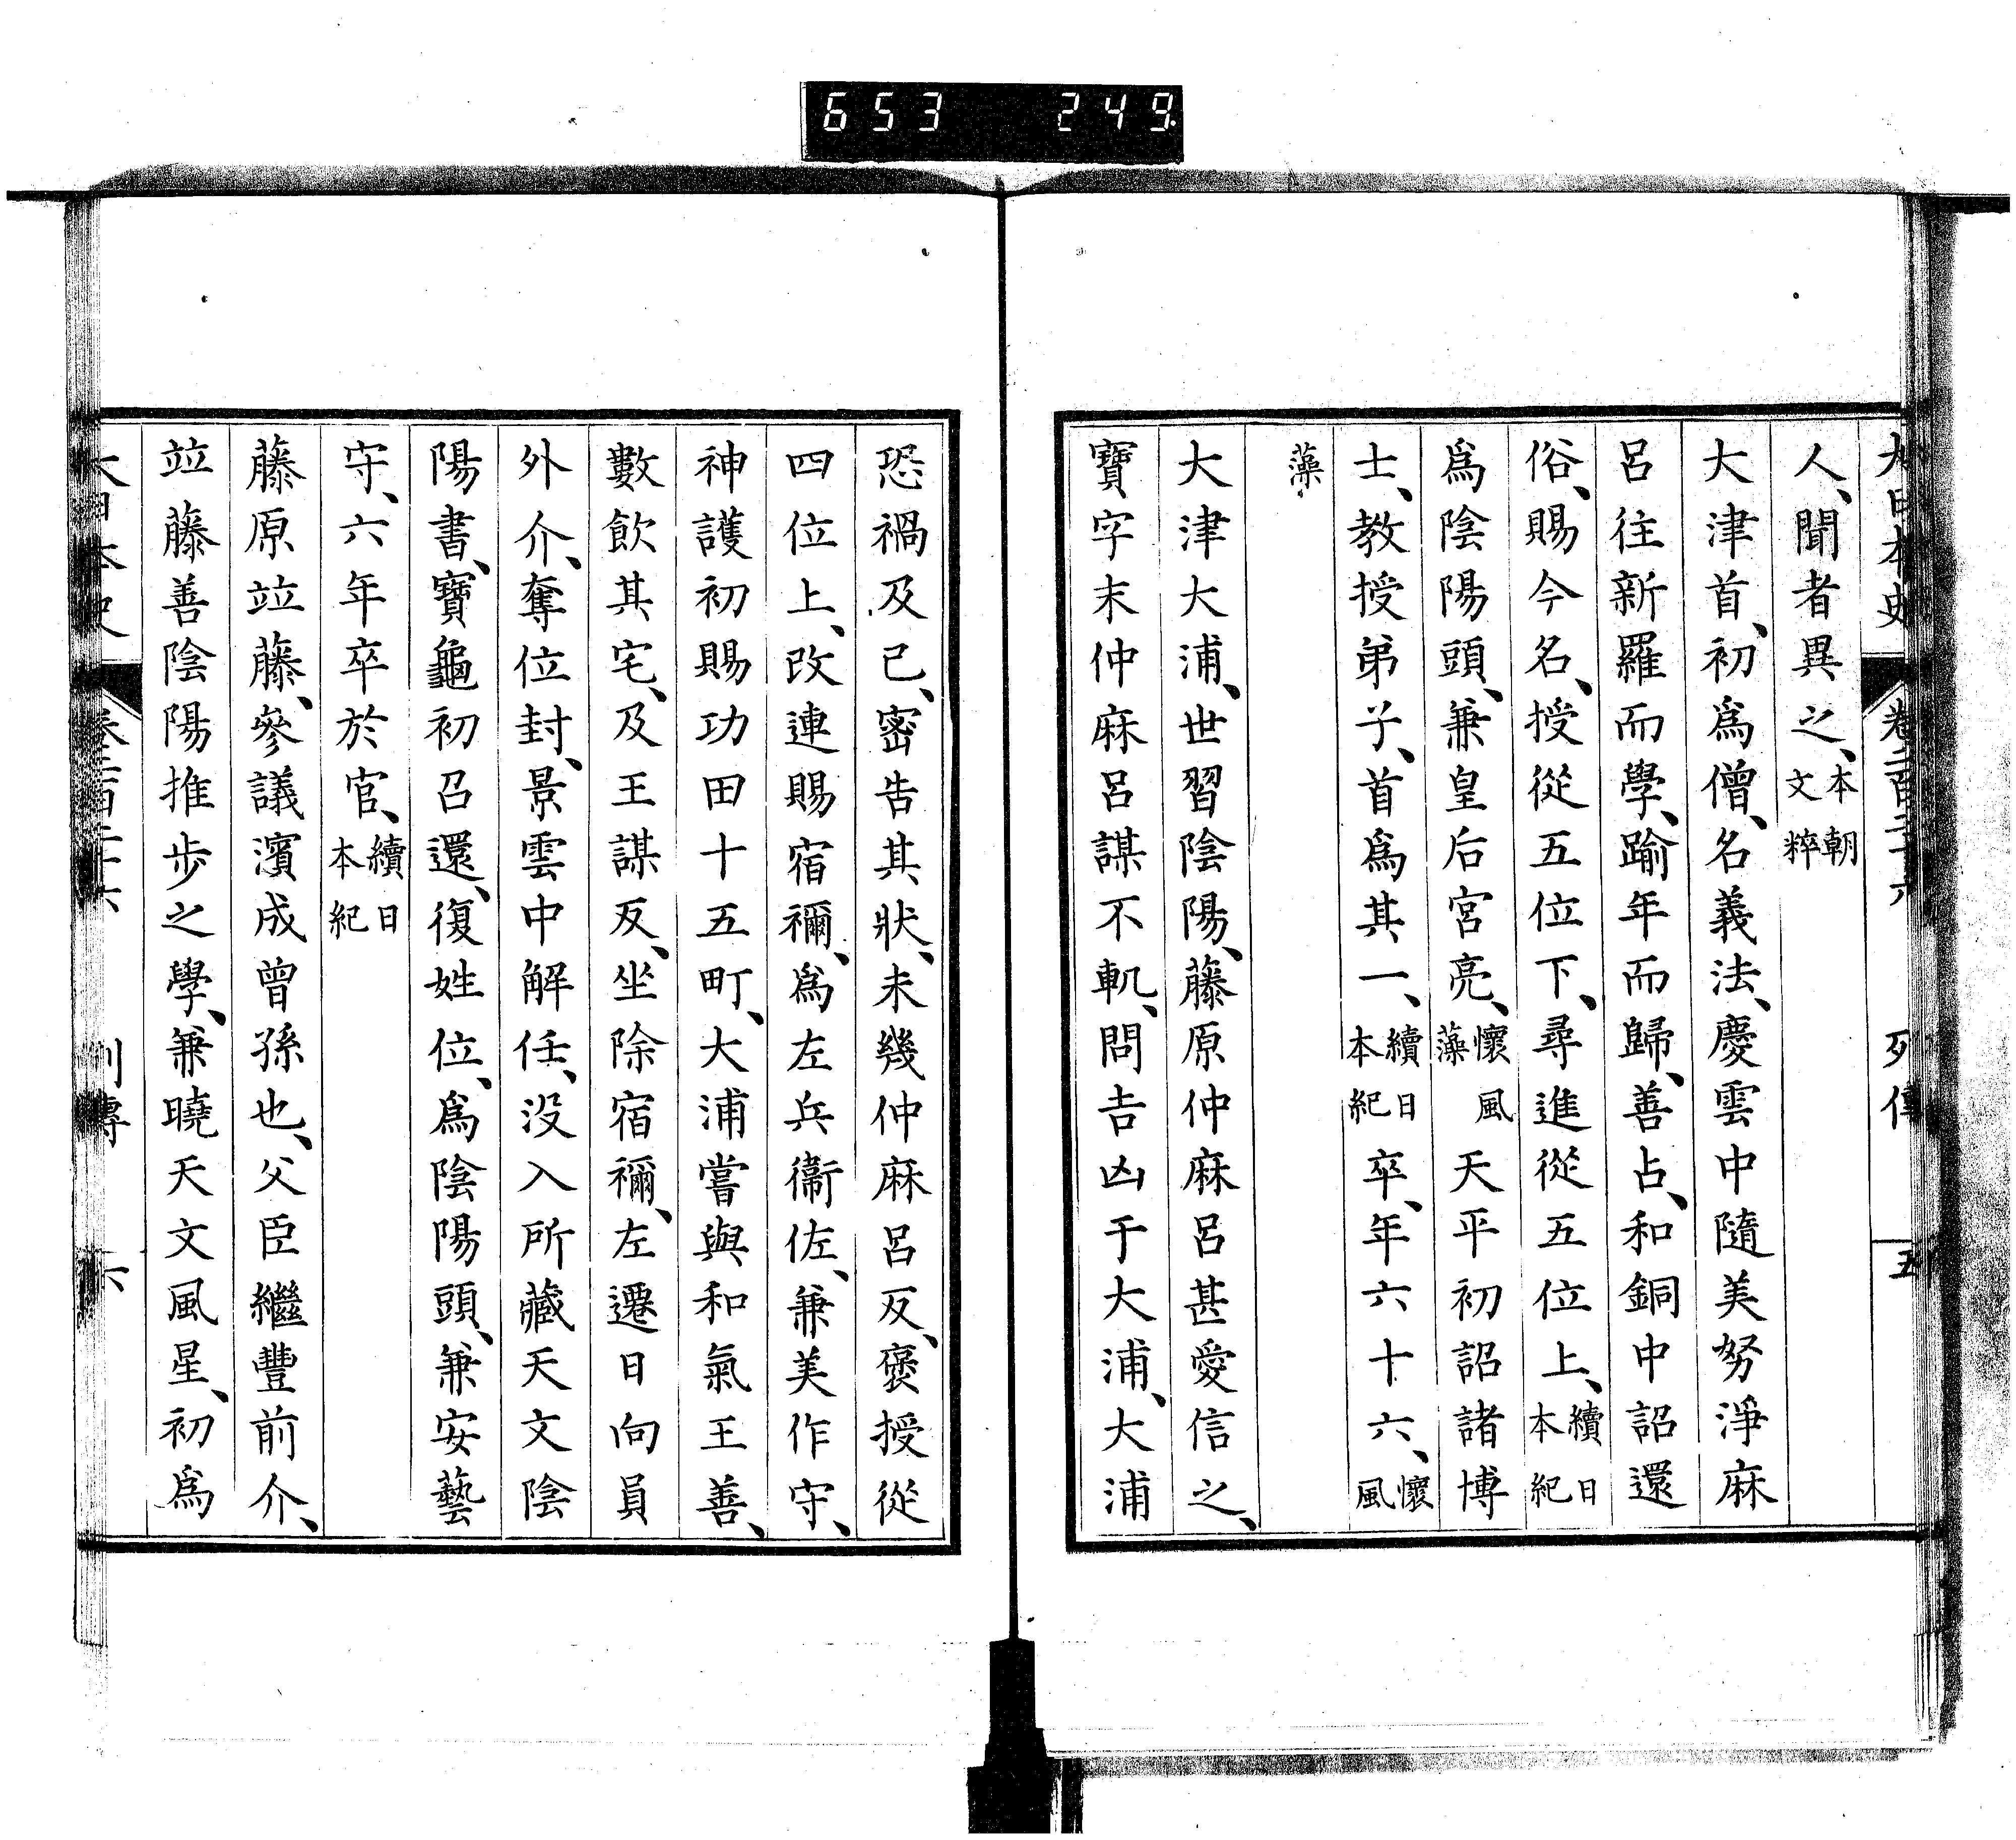 653 249
大日本史 卷二百二十六 列傳 五
人、聞者異之、本朝文粹
大津首、初爲僧、名義法、慶雲中隨美努淨麻
呂往新羅而學、踰年而歸、善占、和銅中詔還
俗、賜今名、授從五位下、尋進從五位上、續日本紀
爲陰陽頭、兼皇后宮亮、懷風藻天平初詔諸博
士、教授弟子、首爲其一、續日本紀卒、年六十六、懷風
藻
大津大浦、世習陰陽、藤原仲麻呂甚愛信之、
寶字末仲麻呂謀不軌、問吉凶于大浦、大浦
恐禍及己、密告其狀、未幾仲麻呂反、褒授從
四位上、改連賜宿禰、爲左兵衞佐、兼美作守、
神護初賜功田十五町、大浦嘗與和氣王善、
數飮其宅、及王謀反、坐除宿禰、左遷日向員
外介、奪位封、景雲中解任、沒入所藏天文陰
陽書、寶龜初召還、復姓位、爲陰陽頭、兼安藝
守、六年卒於官、續日本紀
藤原竝藤、參議濱成曾孫也、父臣繼豐前介、
竝藤善陰陽推步之學、兼曉天文風星、初爲
大日本史 卷二百二十六 列傳 六